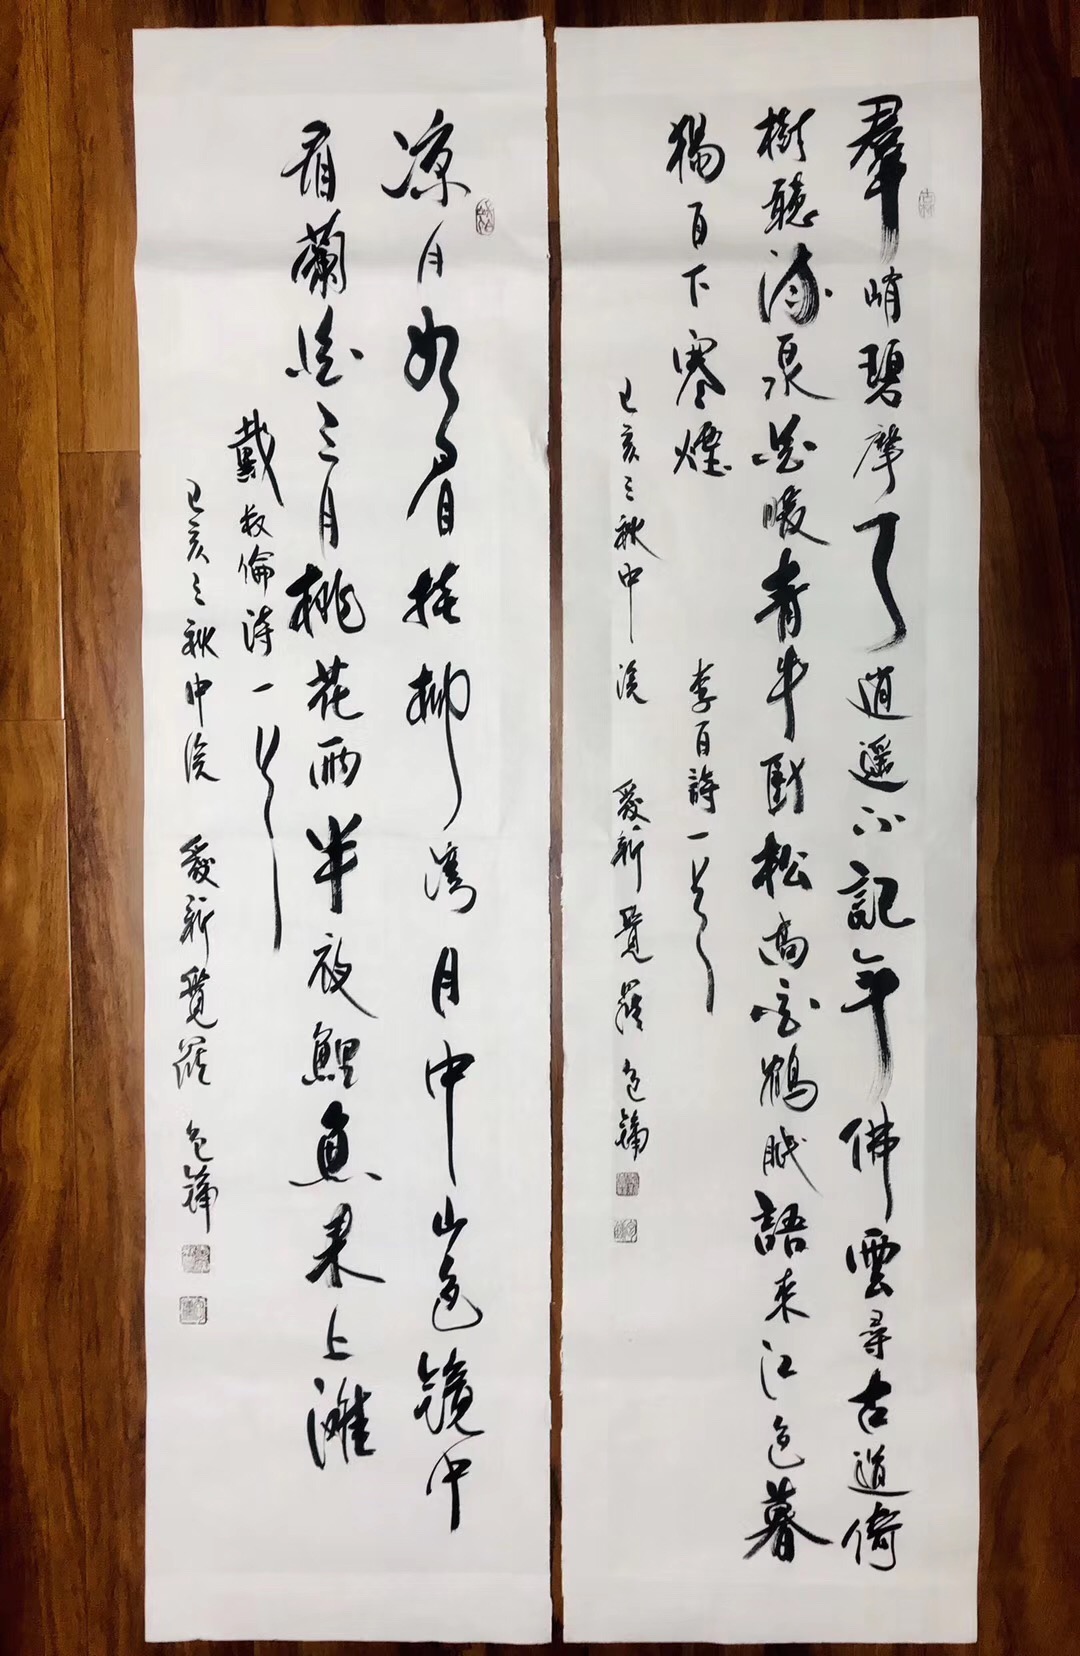 羣峭碧摩天逍遥不記年佛雲尋古道倚
樹聽流泉花暖青牛卧松高白鶴眠語來江色暮
獨自下寒煙
李白詩一首
己亥之秋中浣 愛新覺羅
凉月如眉挂柳灣月中山色鏡中
看蘭溪三月桃花雨半夜鯉魚來上灘
戴叔倫詩一首
己亥之秋中浣 愛新覺羅